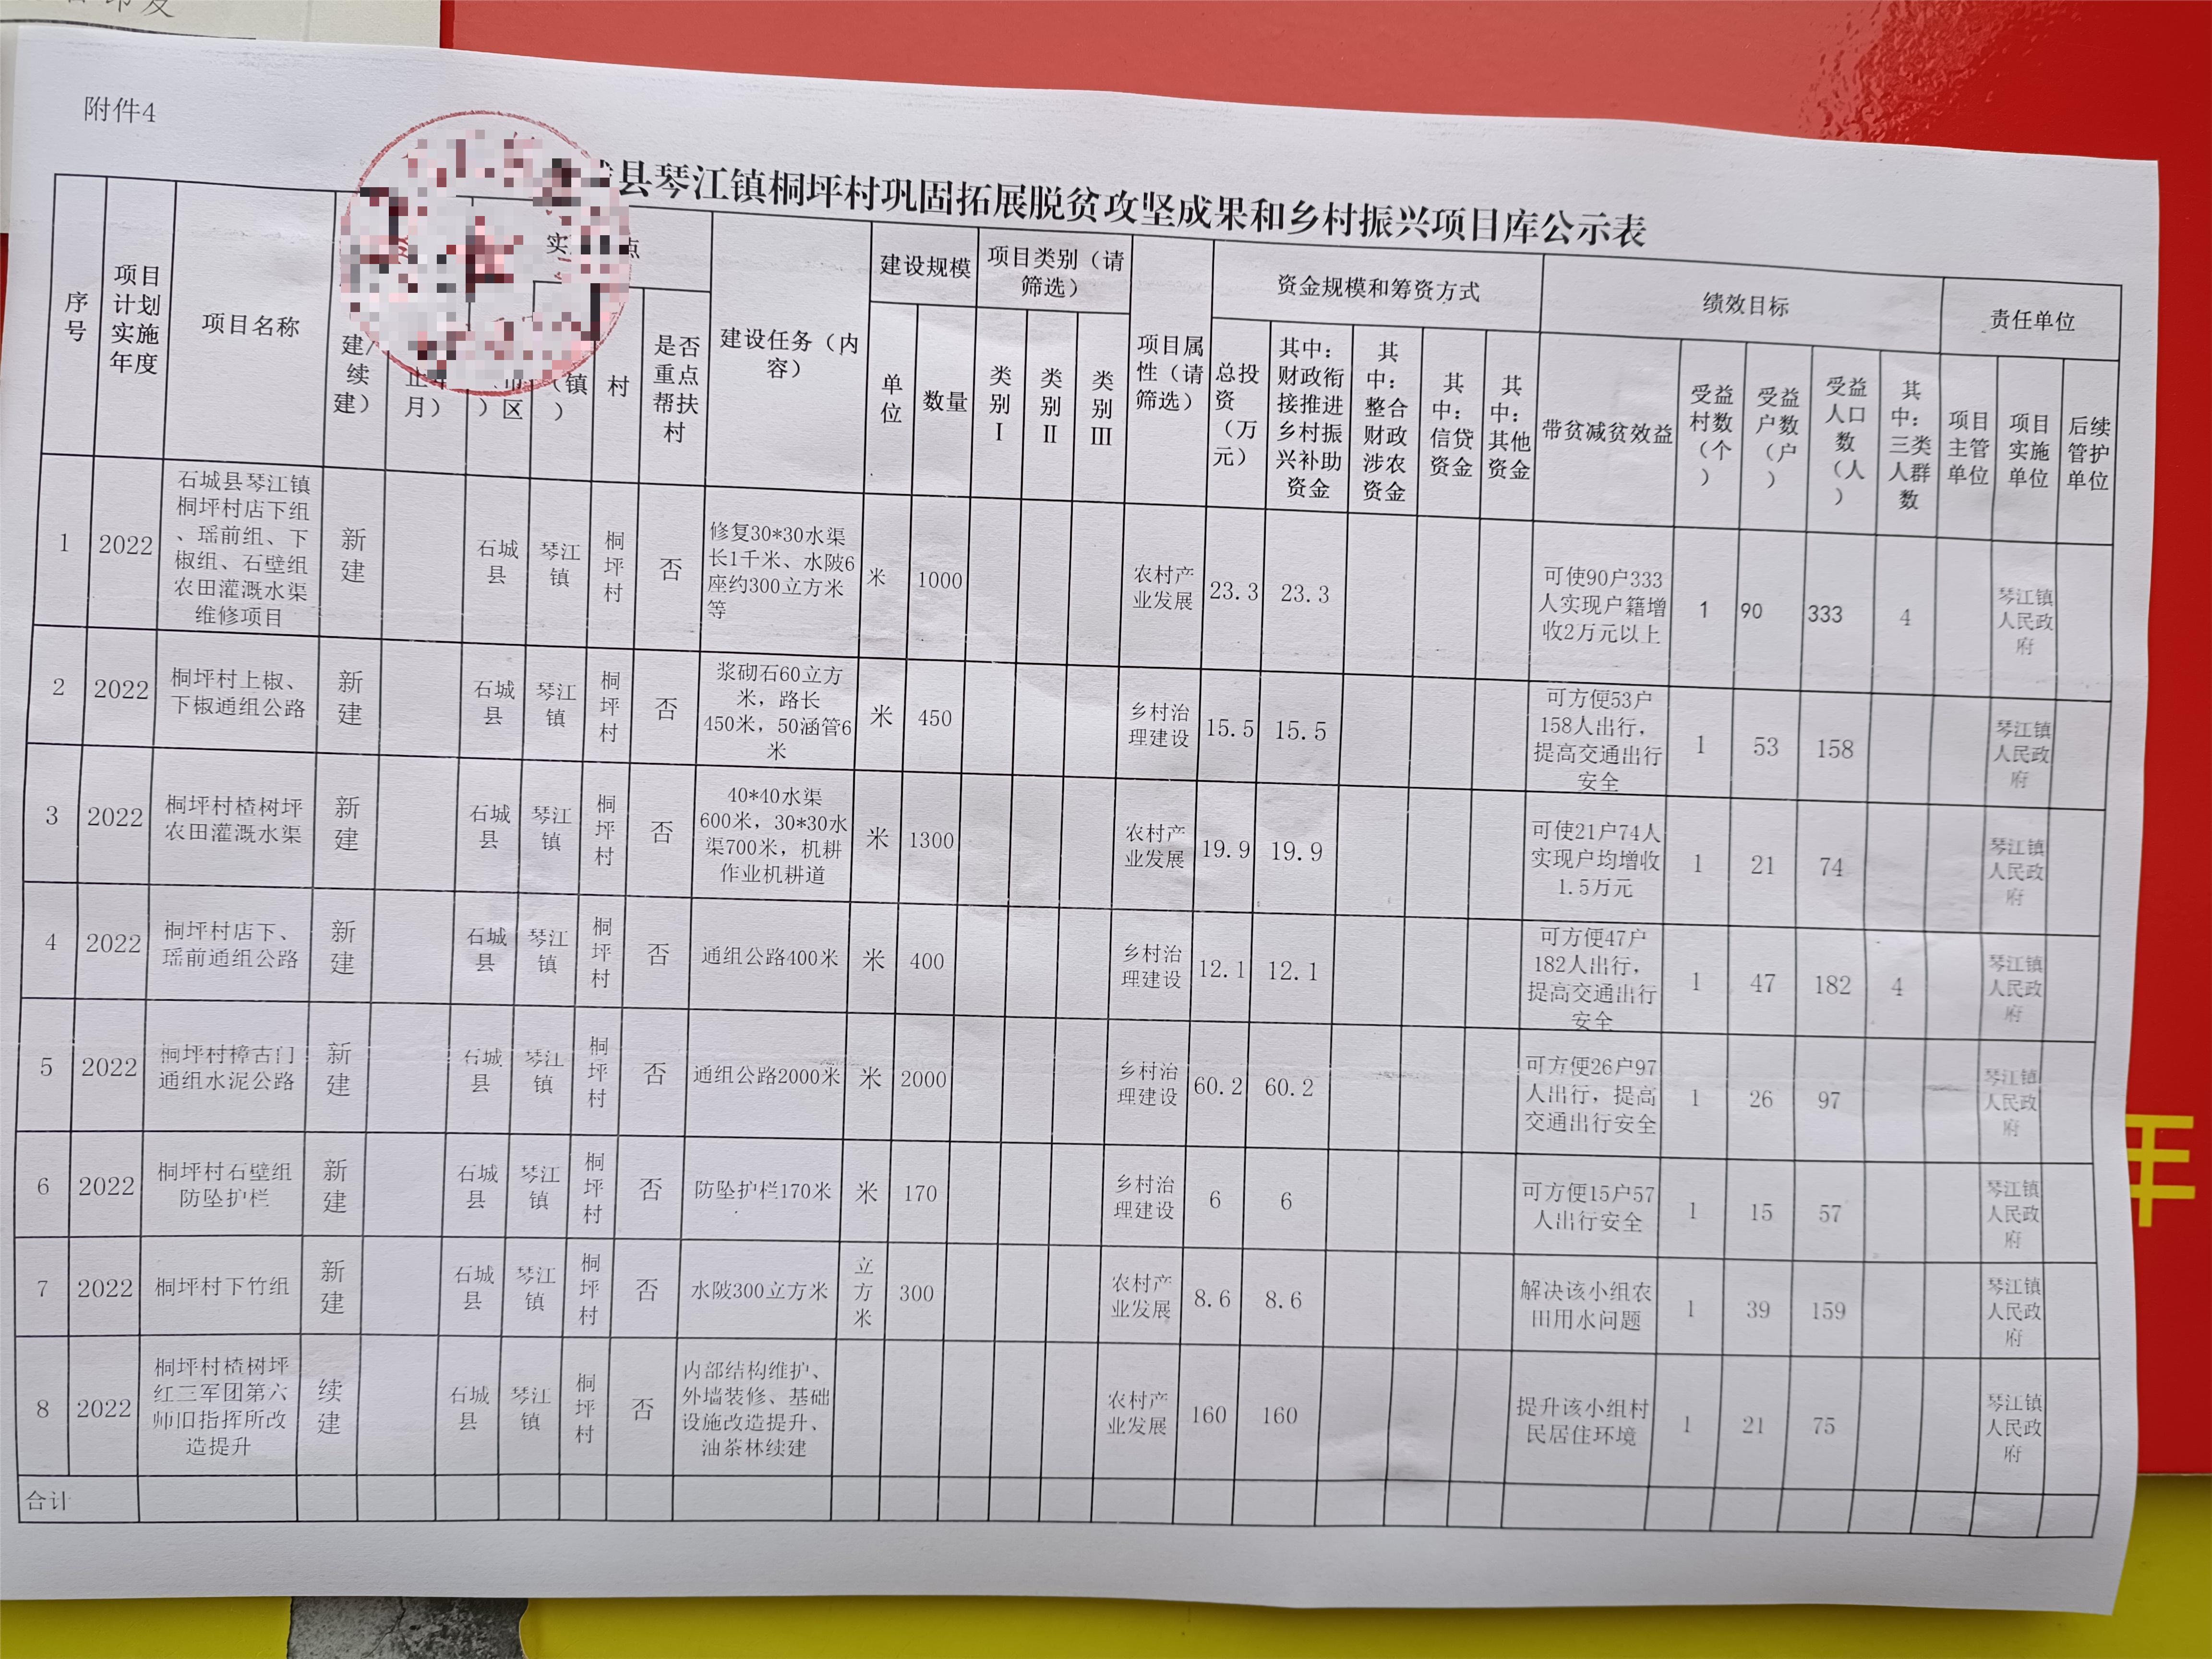 印发
附件4
县琴江镇桐坪村巩固拓展脱贫攻坚成果和乡村振兴项目库公示表
序号 项目计划实施年度 项目名称 建/续建） 月） ）区 （镇） 村 是否重点帮扶村 建设任务（内容） 建设规模 单位 数量 项目类别（请筛选） 类别Ⅰ 类别Ⅱ 类别Ⅲ 项目属性（请筛选） 资金规模和筹资方式 总投资（万元） 其中：财政衔接推进乡村振兴补助资金 其中：整合财政涉农资金 其中：信贷资金 其中：其他资金 绩效目标 带贫减贫效益 受益村数（个） 受益户数（户） 受益人口数（人） 其中：三类人群数 责任单位 项目主管单位 项目实施单位 后续管护单位
1 2022 石城县琴江镇桐坪村店下组、瑶前组、下椒组、石壁组农田灌溉水渠维修项目 新建 石城县 琴江镇 桐坪村 否 修复30*30水渠长1千米、水陂6座约300立方米等 米 1000 农村产业发展 23.3 23.3 可使90户333人实现户籍增收2万元以上 1 90 333 4 琴江镇人民政府
2 2022 桐坪村上椒、下椒通组公路 新建 石城县 琴江镇 桐坪村 否 浆砌石60立方米，路长450米，50涵管6米 米 450 乡村治理建设 15.5 15.5 可方便53户158人出行，提高交通出行安全 1 53 158 琴江镇人民政府
3 2022 桐坪村楂树坪农田灌溉水渠 新建 石城县 琴江镇 桐坪村 否 40*40水渠600米，30*30水渠700米，机耕作业机耕道 米 1300 农村产业发展 19.9 19.9 可使21户74人实现户均增收1.5万元 1 21 74 琴江镇人民政府
4 2022 桐坪村店下、瑶前通组公路 新建 石城县 琴江镇 桐坪村 否 通组公路400米 米 400 乡村治理建设 12.1 12.1 可方便47户182人出行，提高交通出行安全 1 47 182 4 琴江镇人民政府
5 2022 桐坪村樟古门通组水泥公路 新建 石城县 琴江镇 桐坪村 否 通组公路2000米 米 2000 乡村治理建设 60.2 60.2 可方便26户97人出行，提高交通出行安全 1 26 97 琴江镇人民政府
6 2022 桐坪村石壁组防坠护栏 新建 石城县 琴江镇 桐坪村 否 防坠护栏170米 米 170 乡村治理建设 6 6 可方便15户57人出行安全 1 15 57 琴江镇人民政府
7 2022 桐坪村下竹组 新建 石城县 琴江镇 桐坪村 否 水陂300立方米 立方米 300 农村产业发展 8.6 8.6 解决该小组农田用水问题 1 39 159 琴江镇人民政府
8 2022 桐坪村楂树坪红三军团第六师旧指挥所改造提升 续建 石城县 琴江镇 桐坪村 否 内部结构维护、外墙装修、基础设施改造提升、油茶林续建 农村产业发展 160 160 提升该小组村民居住环境 1 21 75 琴江镇人民政府
合计